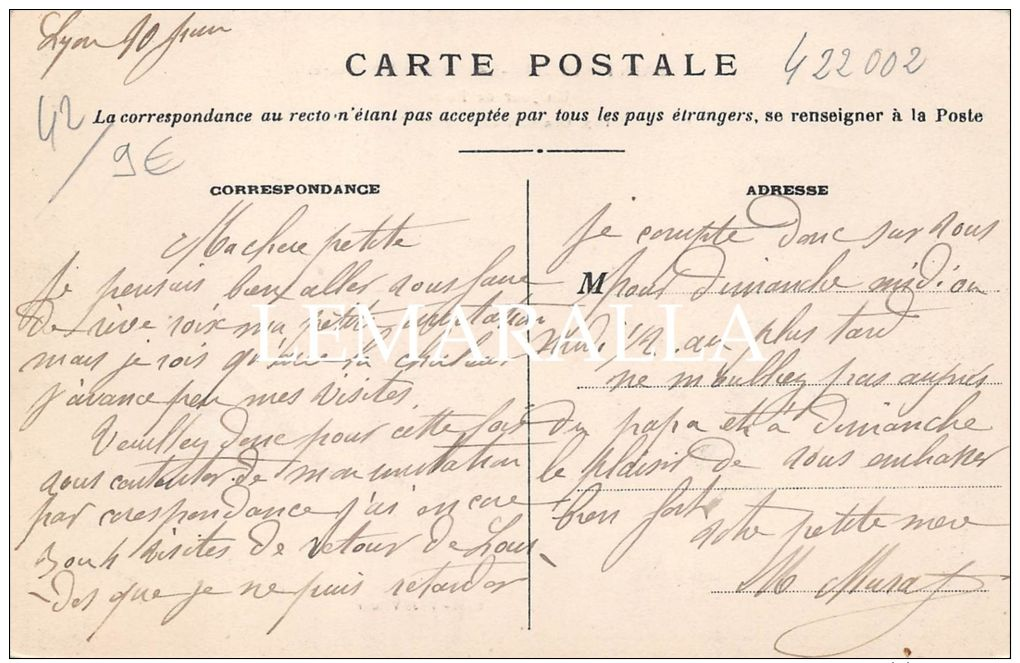 Lyon 10 juin
CARTE POSTALE
422002
42
La correspondance au recto n'étant pas acceptée par tous les pays étrangers, se renseigner à la Poste
9€
CORRESPONDANCE
Ma chere petite
Je pensais bien aller vous faire
de vive voix ma petite invitation
mais je vois qu'avec la chaleur
j'avance peu mes visites
Veuillez donc pour cette fois
vous contenter de mon invitation
par corespondance j'ai encore
3 ou 4 visites de retour de
des que je ne puis retarder
ADRESSE
Je compte donc sur vous
M
pour dimanche midi ou
midi 1/2 au plus tard
ne m'oulliez pas aupres
du papa et à dimanche
le plaisir de vous embrasser
bien fort
votre petite mere
M Murat
LEMARALLA